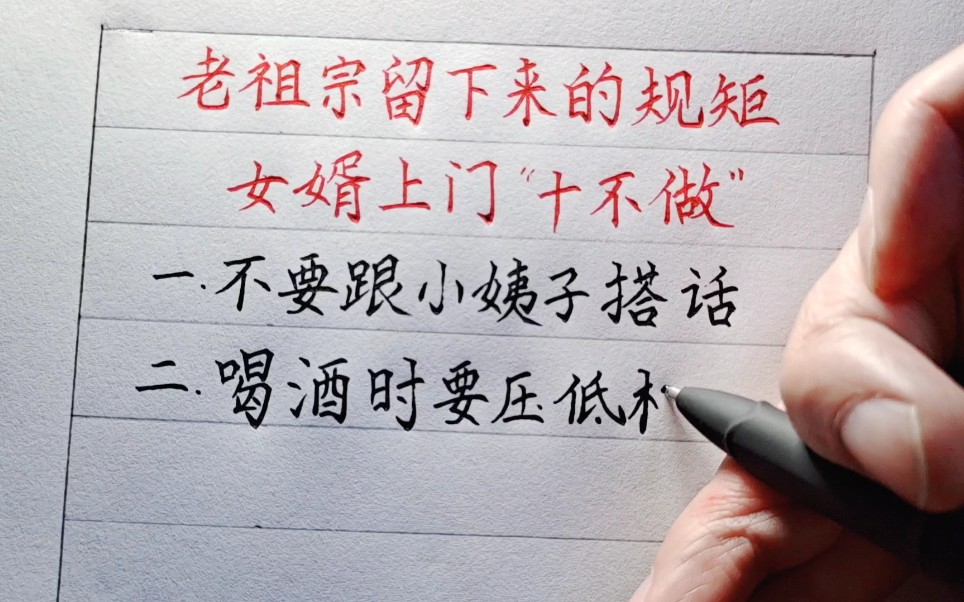 老祖宗留下来的规矩
女婿上门“十不做”
一.不要跟小姨子搭话
二.喝酒时要压低